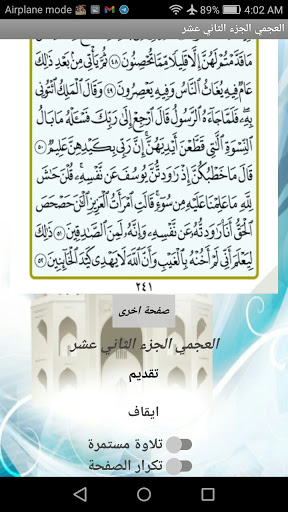 Airplane mode 89% 4:02 AM
العجمي الجزء الثاني عشر
مَا قَدَّمْتُمْ لَهُنَّ إِلَّا قَلِيلًا مِّمَّا تُحْصِنُونَ ٤٨ ثُمَّ يَأْتِي مِنۢ بَعْدِ ذَٰلِكَ
عَامٌ فِيهِ يُغَاثُ ٱلنَّاسُ وَفِيهِ يَعْصِرُونَ ٤٩ وَقَالَ ٱلْمَلِكُ ٱئْتُونِي
بِهِۦ فَلَمَّا جَآءَهُ ٱلرَّسُولُ قَالَ ٱرْجِعْ إِلَىٰ رَبِّكَ فَسْـَٔلْهُ مَا بَالُ
ٱلنِّسْوَةِ ٱلَّٰتِي قَطَّعْنَ أَيْدِيَهُنَّ إِنَّ رَبِّي بِكَيْدِهِنَّ عَلِيمٌ ٥٠
قَالَ مَا خَطْبُكُنَّ إِذْ رَٰوَدتُّنَّ يُوسُفَ عَن نَّفْسِهِۦ قُلْنَ حَٰشَ
لِلَّهِ مَا عَلِمْنَا عَلَيْهِ مِن سُوٓءٍ قَالَتِ ٱمْرَأَتُ ٱلْعَزِيزِ ٱلْـَٰٔنَ حَصْحَصَ
ٱلْحَقُّ أَنَا۠ رَٰوَدتُّهُۥ عَن نَّفْسِهِۦ وَإِنَّهُۥ لَمِنَ ٱلصَّٰدِقِينَ ٥١ ذَٰلِكَ
لِيَعْلَمَ أَنِّي لَمْ أَخُنْهُ بِٱلْغَيْبِ وَأَنَّ ٱللَّهَ لَا يَهْدِي كَيْدَ ٱلْخَآئِنِينَ ٥٢
٢٤١
صفحة اخرى
العجمي الجزء الثاني عشر
تقديم
ايقاف
تلاوة مستمرة
تكرار الصفحة